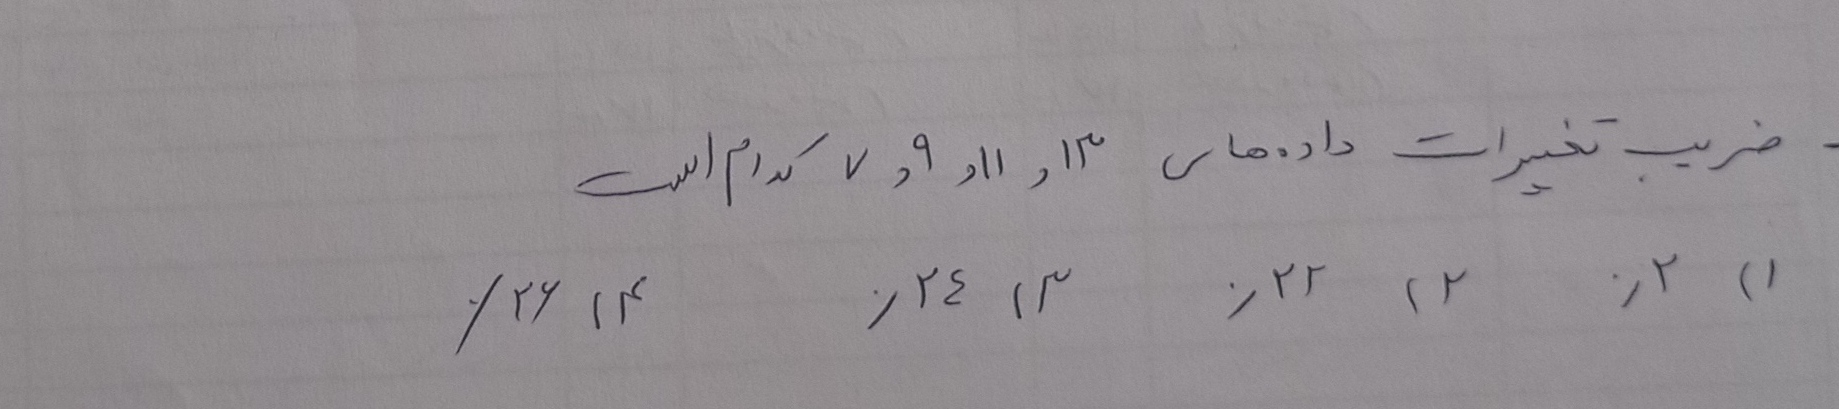 - ضریب تغییرات داده‌های ۱۳ و ۱۱ و ۹ و ۷ کدام است
۱) ۰٫۲ ۲) ۰٫۲۲ ۳) ۰٫۲۴ ۴) ۰٫۲۶